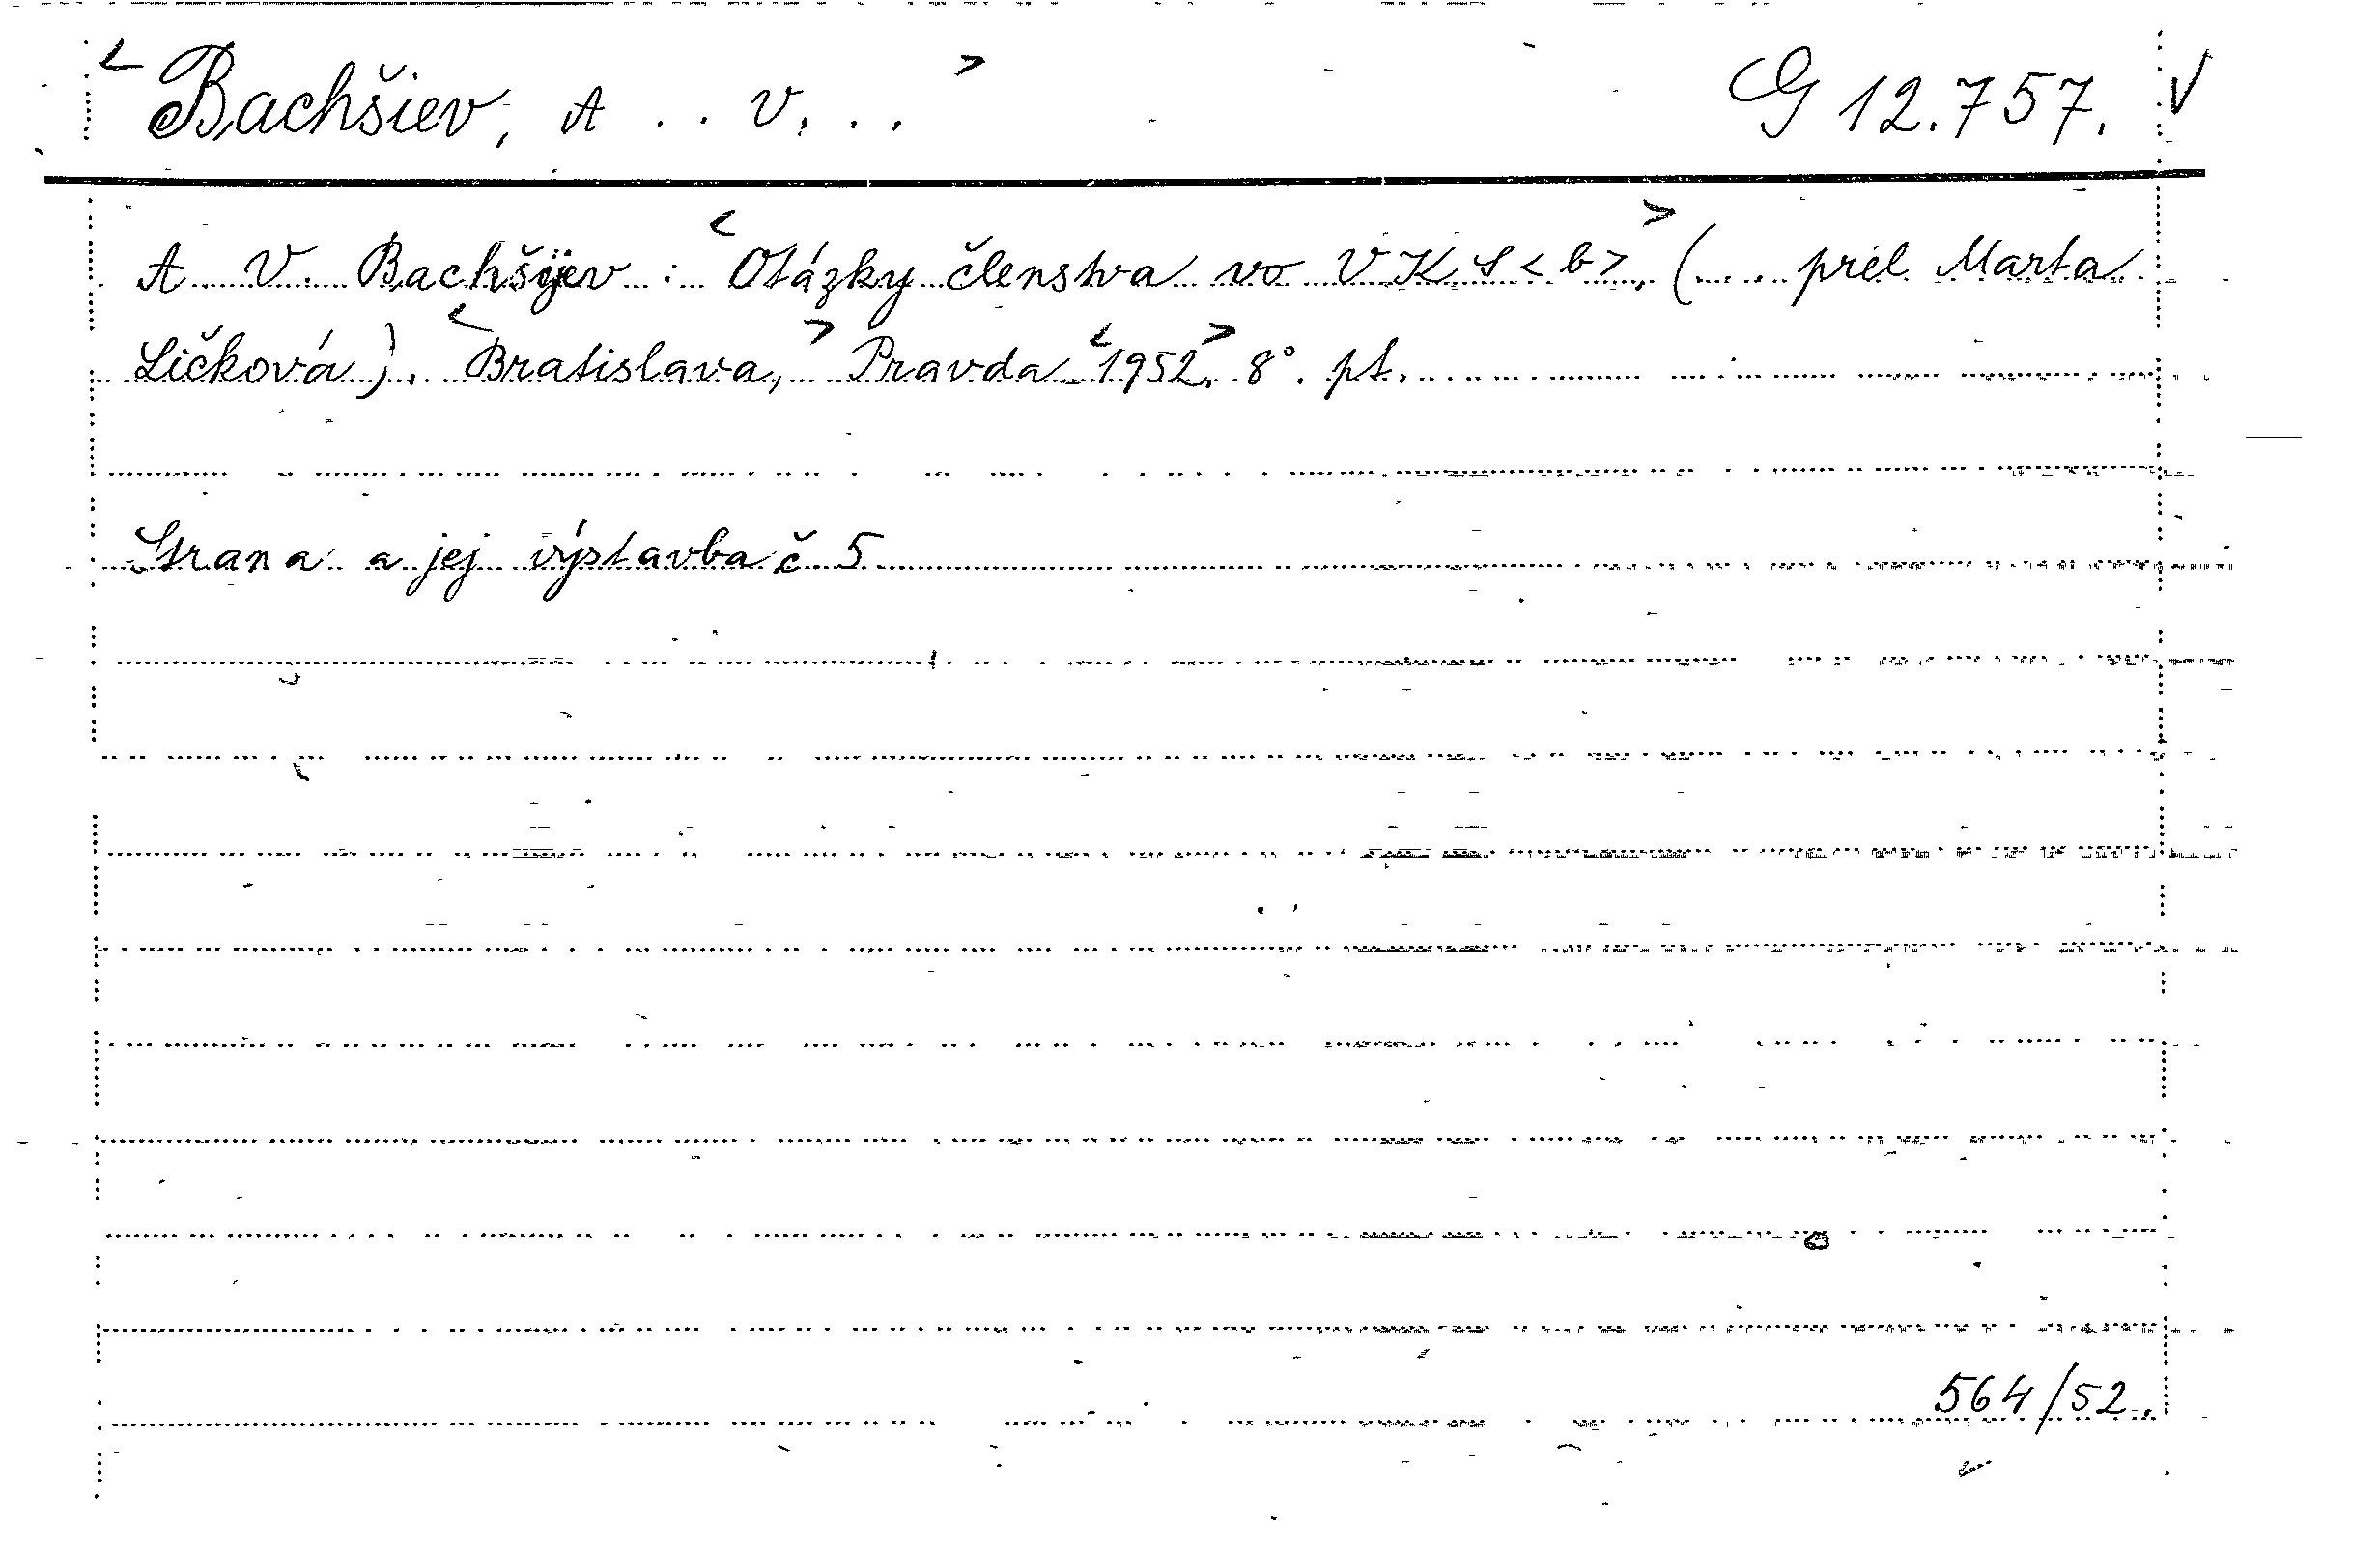 < Bachšiev, A . . V. . . > G 12.757. √
A. V. Bachšijev : < Otázky členstva vo VKS <b>, > ( . . . prel. Marta
Ličková ). < Bratislava, > Pravda < 1952. > 8°. pt.
Strana a jej výstavba č 5
564/52.